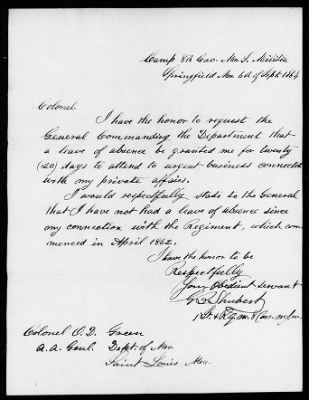 Camp 8th Cav. Mo. S. Militia
Springfield Mo. 6th of Sept. 1864
Colonel.
I have the honor to request the
General Commanding the Department that
a leave of absence be granted me for twenty
(20) days to attend to urgent business connected
with my private affairs.
I would respectfully state to the General
that I have not had a leave of absence since
my connection with the Regiment, which com
menced in April 1862.
I have the honor to be
Respectfully
Your Obedient servant
Shubert
1st Lt. & R.Q.M. 8 Cav. M.S.M.
Colonel O. D. Green
A. A. Genl. Dept. of Mo.
Saint Louis Mo.